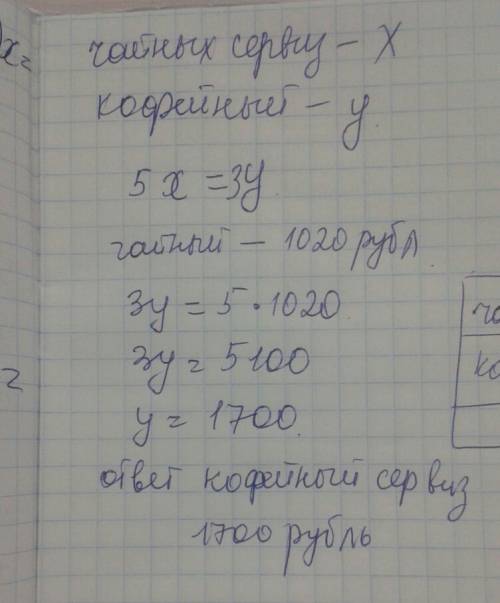 x =
чайных сервиз – X
кофейный – y
5x = 3y
чайный – 1020 рубл
3y = 5 · 1020
3y = 5100
y = 1700.
ответ кофейный сервиз
1700 рубль
ча
ко
2